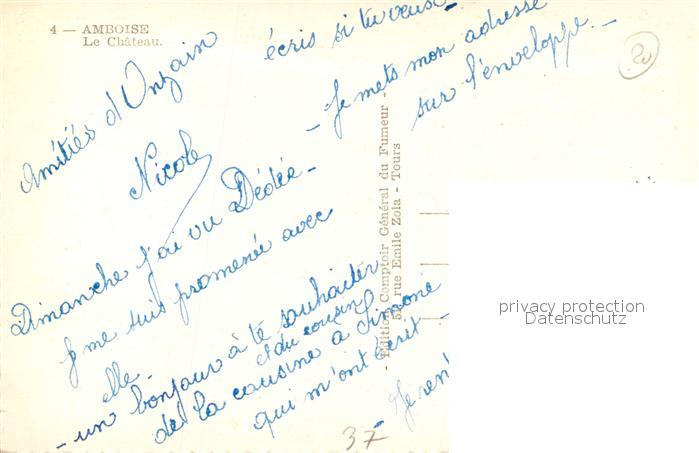 4 — AMBOISE
Le Château.
Amitiés d'Onzain
Nicole
Dimanche j'ai vu Dédée -
je me suis promenée avec
elle.
- un bonjour à te souhaiter
et du cousin
de la cousine à Simone
qui m'ont écrit -
- Je
écris si tu veux -
- Je mets mon adresse
sur l'enveloppe -
- Edition Comptoir Général du Fumeur -
51, rue Emile Zola - Tours
37
privacy protection
Datenschutz